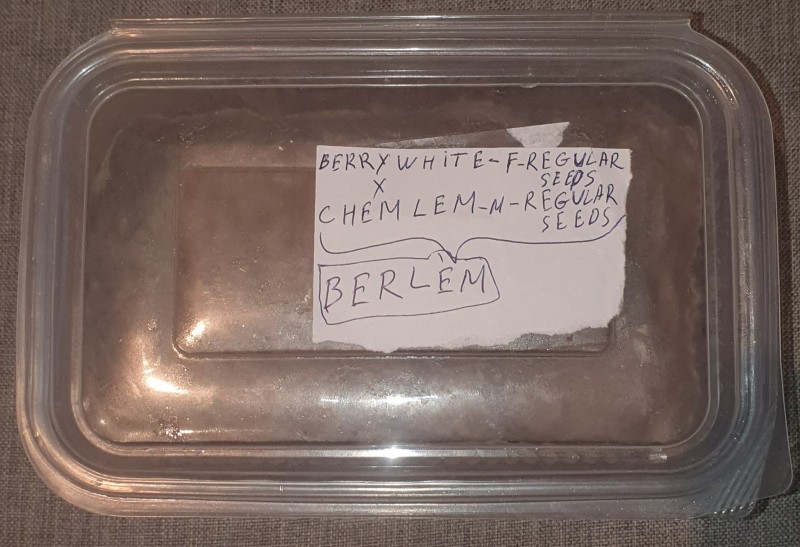 BERRYWHITE-F-REGULAR
SEEDS
X
CHEMLEM-M-REGULAR
SEEDS
BERLÈM